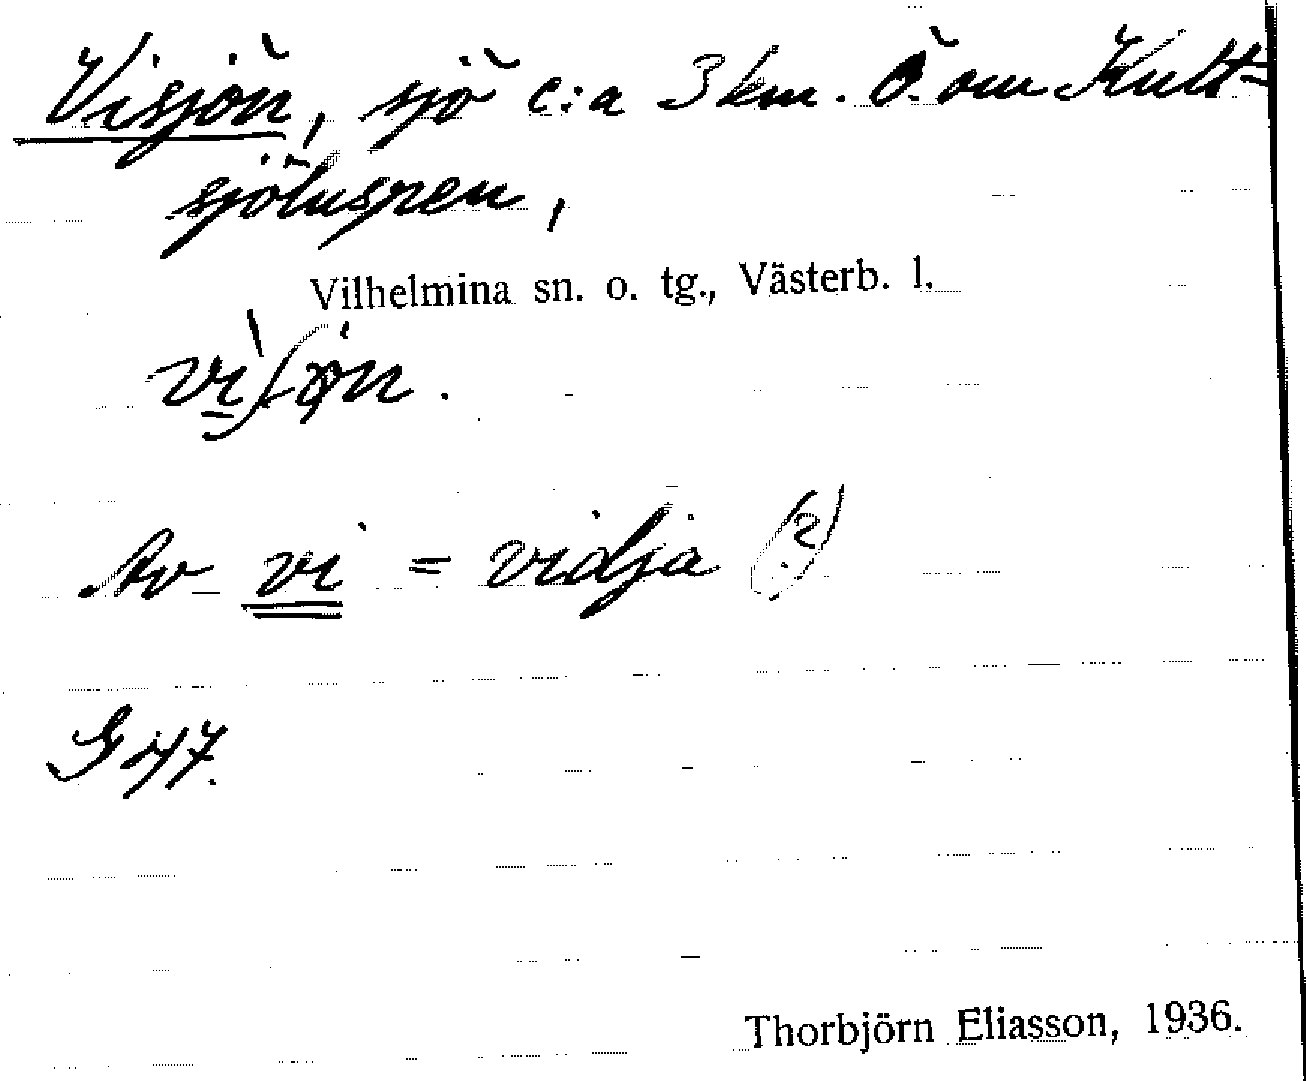 Visjön, sjö c:a 3 km. Ö. om Kult-
sjöluspen,
Vilhelmina sn. o. tg., Västerb. l.
Av vi = vidja (?)
Thorbjörn Eliasson, 1936.